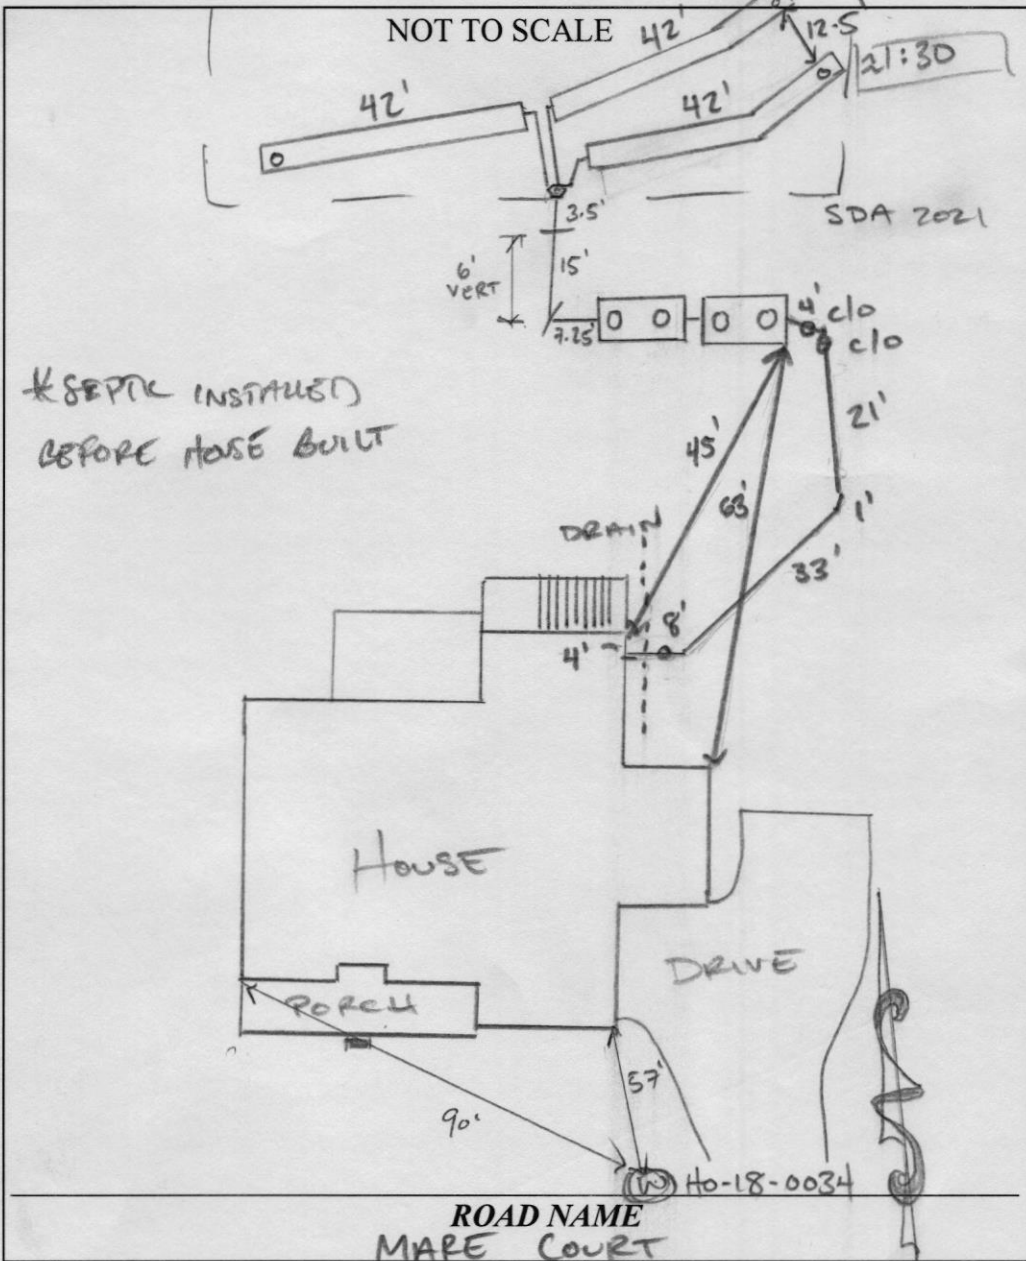 NOT TO SCALE
42'
12.5
21:30
42'
42'
SDA 2021
3.5'
6'
VERT
15'
7.25'
4' c/o
c/o
*SEPTIC INSTALLED
BEFORE HOUSE BUILT
21'
45'
63'
1'
DRAIN
33'
8'
4'
HOUSE
DRIVE
PORCH
57'
90'
W HO-18-0034
N
ROAD NAME
MARE COURT